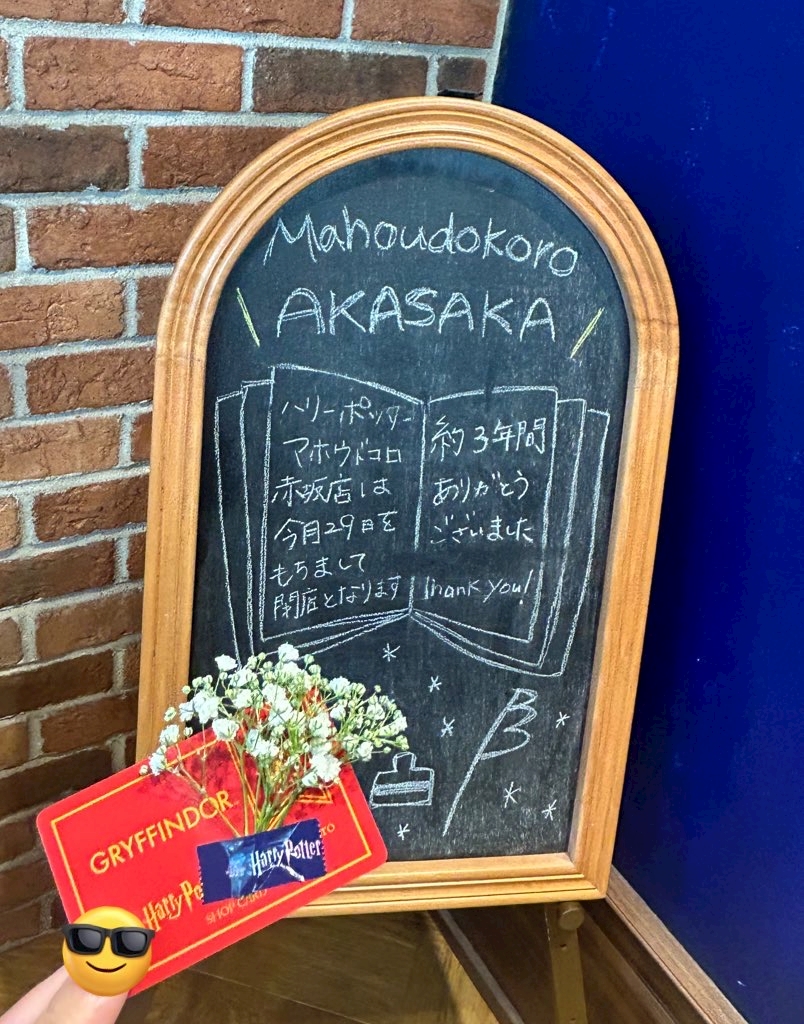 Mahoudokoro
AKASAKA
ハリーポッター
マホウドコロ
赤坂店は
今月29日を
もちまして
閉店となります
約3年間
ありがとう
ございました
Thank you!
GRYFFINDOR
Harry Potter
Harry Po
SHOP CARD